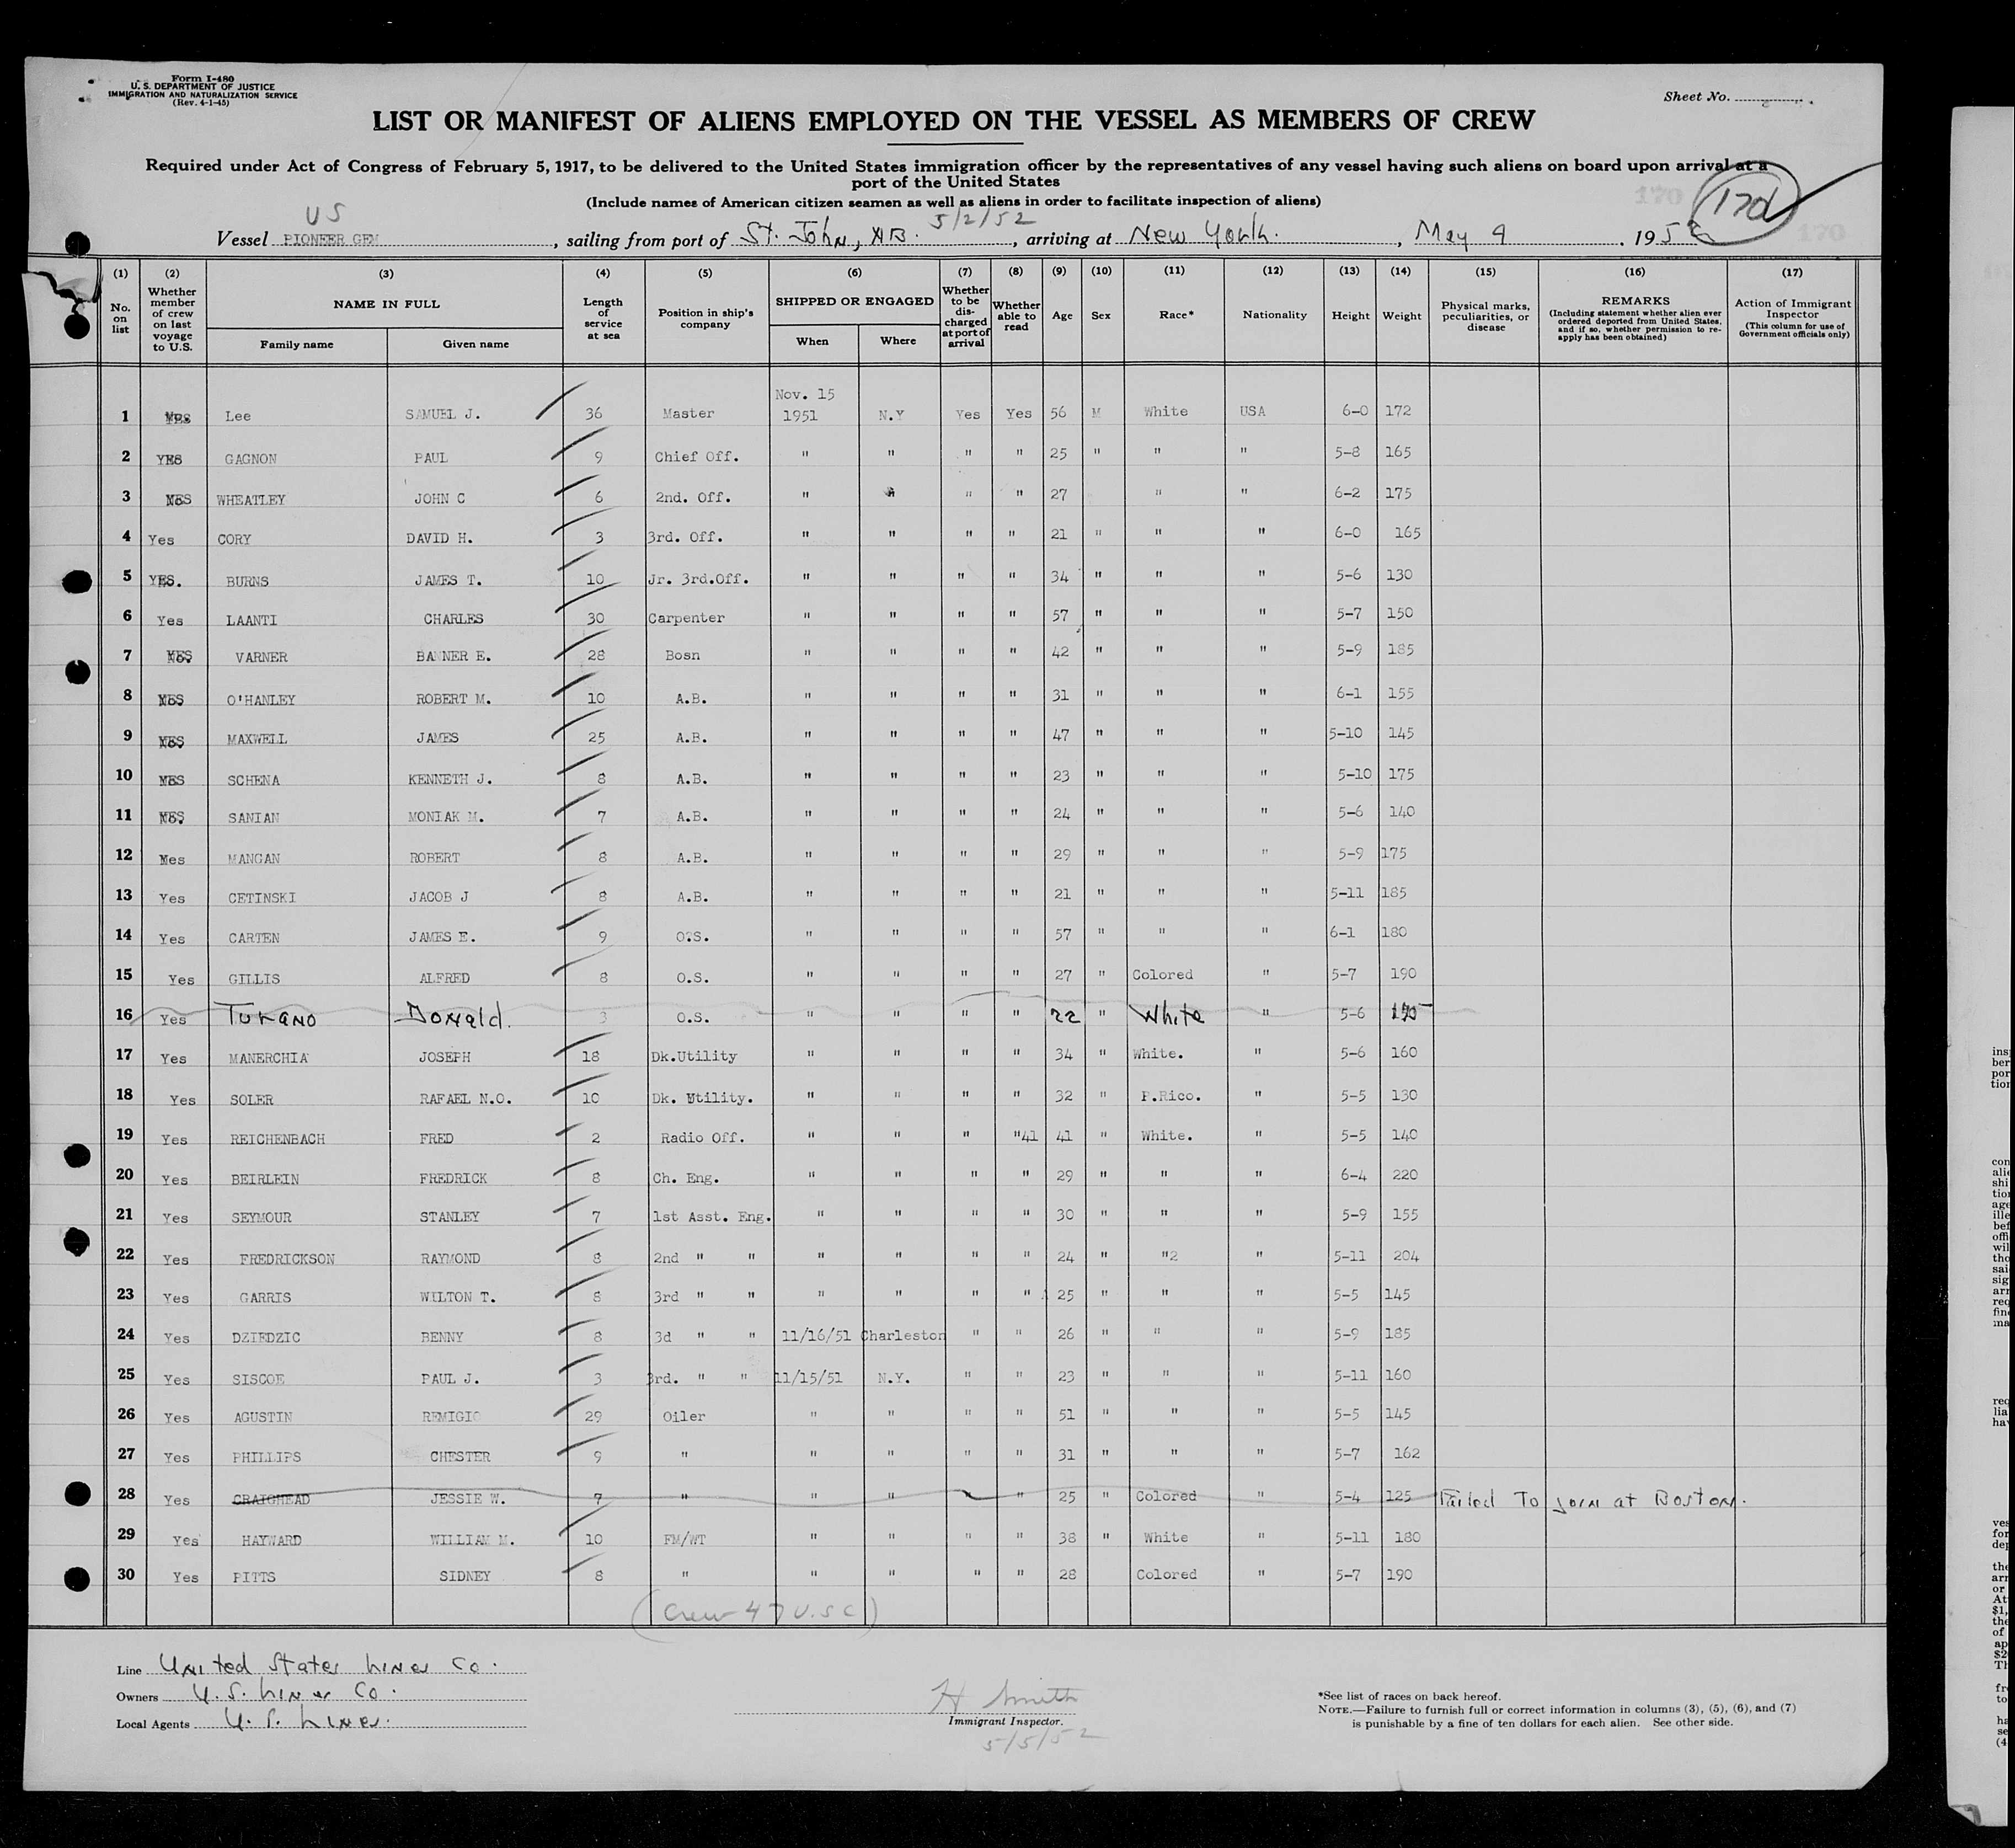 Form I-480
U. S. DEPARTMENT OF JUSTICE
IMMIGRATION AND NATURALIZATION SERVICE
(Rev. 4-1-45)
Sheet No.
LIST OR MANIFEST OF ALIENS EMPLOYED ON THE VESSEL AS MEMBERS OF CREW
Required under Act of Congress of February 5, 1917, to be delivered to the United States immigration officer by the representatives of any vessel having such aliens on board upon arrival at a
port of the United States
(Include names of American citizen seamen as well as aliens in order to facilitate inspection of aliens)
170 170 170
US 5/2/52
Vessel PIONEER GEM, sailing from port of St. John, NB., arriving at New York., May 9, 195
(1) (2) (3) (4) (5) (6) (7) (8) (9) (10) (11) (12) (13) (14) (15) (16) (17)
No. on list
Whether member of crew on last voyage to U.S.
NAME IN FULL
Family name Given name
Length of service at sea
Position in ship's company
SHIPPED OR ENGAGED
When Where
Whether to be discharged at port of arrival
Whether able to read
Age Sex Race* Nationality Height Weight
Physical marks, peculiarities, or disease
REMARKS
(Including statement whether alien ever ordered deported from United States, and if so, whether permission to re-apply has been obtained)
Action of Immigrant Inspector
(This column for use of Government officials only)
Nov. 15
1 Yes Lee SAMUEL J. 36 Master 1951 N.Y Yes Yes 56 M White USA 6-0 172
2 YES GAGNON PAUL 9 Chief Off. " " " " 25 " " " 5-8 165
3 YES WHEATLEY JOHN C 6 2nd. Off. " " " " 27 " " 6-2 175
4 Yes CORY DAVID H. 3 3rd. Off. " " " " 21 " " " 6-0 165
5 YES. BURNS JAMES T. 10 Jr. 3rd.Off. " " " " 34 " " " 5-6 130
6 Yes LAANTI CHARLES 30 Carpenter " " " " 57 " " " 5-7 150
7 YES VARNER BANNER E. 28 Bosn " " " " 42 " " " 5-9 185
8 YES O'HANLEY ROBERT M. 10 A.B. " " " " 31 " " " 6-1 155
9 YES MAXWELL JAMES 25 A.B. " " " " 47 " " " 5-10 145
10 YES SCHENA KENNETH J. 8 A.B. " " " " 23 " " " 5-10 175
11 YES SANIAN MONIAK M. 7 A.B. " " " " 24 " " " 5-6 140
12 Yes MANGAN ROBERT 8 A.B. " " " " 29 " " " 5-9 175
13 Yes CETINSKI JACOB J 8 A.B. " " " " 21 " " " 5-11 185
14 Yes CARTEN JAMES E. 9 O.S. " " " " 57 " " " 6-1 180
15 Yes GILLIS ALFRED 8 O.S. " " " " 27 " Colored " 5-7 190
16 Yes Turano Donald. 3 O.S. " " " " 22 " White " 5-6
17 Yes MANERCHIA JOSEPH 18 Dk.Utility " " " " 34 " White. " 5-6 160
18 Yes SOLER RAFAEL N.O. 10 Dk. Utility. " " " " 32 " P.Rico. " 5-5 130
19 Yes REICHENBACH FRED 2 Radio Off. " " " "41 41 " White. " 5-5 140
20 Yes BEIRLEIN FREDRICK 8 Ch. Eng. " " " " 29 " " " 6-4 220
21 Yes SEYMOUR STANLEY 7 1st Asst. Eng. " " " " 30 " " " 5-9 155
22 Yes FREDRICKSON RAYMOND 8 2nd " " " " " " 24 " "2 " 5-11 204
23 Yes GARRIS WILTON T. 8 3rd " " " " " " 25 " " " 5-5 145
24 Yes DZIEDZIC BENNY 8 3d " " 11/16/51 Charleston " " 26 " " " 5-9 185
25 Yes SISCOE PAUL J. 3 3rd. " " 11/15/51 N.Y. " " 23 " " " 5-11 160
26 Yes AGUSTIN REMIGIO 29 Oiler " " " " 51 " " " 5-5 145
27 Yes PHILLIPS CHESTER 9 " " " " " 31 " " " 5-7 162
28 Yes CRAIGHEAD JESSIE W. 7 " " " " 25 " Colored " 5-4 125 Failed To join at Boston.
29 Yes HAYWARD WILLIAM M. 10 FM/WT " " " " 38 " White " 5-11 180
30 Yes PITTS SIDNEY 8 " " " " " 28 Colored " 5-7 190
(Crew 47 U.S C)
Line United States Lines Co.
Owners U.S. Lines Co.
Local Agents U.S. Lines.
H Smith
Immigrant Inspector.
5/5/52
*See list of races on back hereof.
NOTE.—Failure to furnish full or correct information in columns (3), (5), (6), and (7)
is punishable by a fine of ten dollars for each alien. See other side.